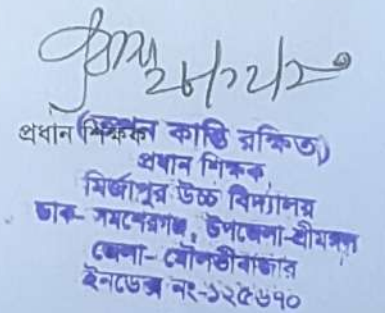 ২৮/১২/২০
প্রধান শিক্ষক
কান্তি রক্ষিত)
প্রধান শিক্ষক
মির্জাপুর উচ্চ বিদ্যালয়
ডাক- সমশেরগঞ্জ, উপজেলা-শ্রীমঙ্গল
জেলা- মৌলভীবাজার
ইনডেক্স নং-১২৫৬৭০